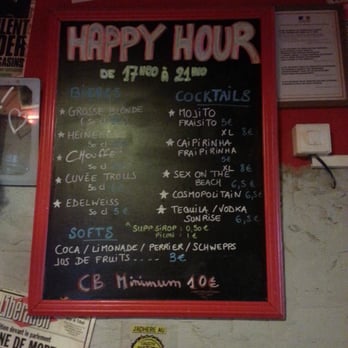 HAPPY HOUR
DE 17H00 À 21H00
BIÈRES
★ GROSSE BLONDE
50 cl
★ HEINEKEN
50 cl
★ CHOUFFE
50 cl
★ CUVÉE TROLLS
50 cl
★ EDELWEISS
50 cl 5€
COCKTAILS
★ MOJITO
FRAISITO 5€
XL 8€
★ CAÏPIRINHA
FRAIPIRINHA 5€
XL 8€
★ SEX ON THE
BEACH 6,5€
★ COSMOPOLITAN 6,5€
★ TEQUILA / VODKA
SUNRISE 6,5€
SUPP SIROP : 0,50€
PICON : 1€
SOFTS
COCA / LIMONADE / PERRIER / SCHWEPPS
JUS DE FRUITS .... 3€
CB MINIMUM 10€
Libération
NE DE MOR
J'ADHÈRE AU